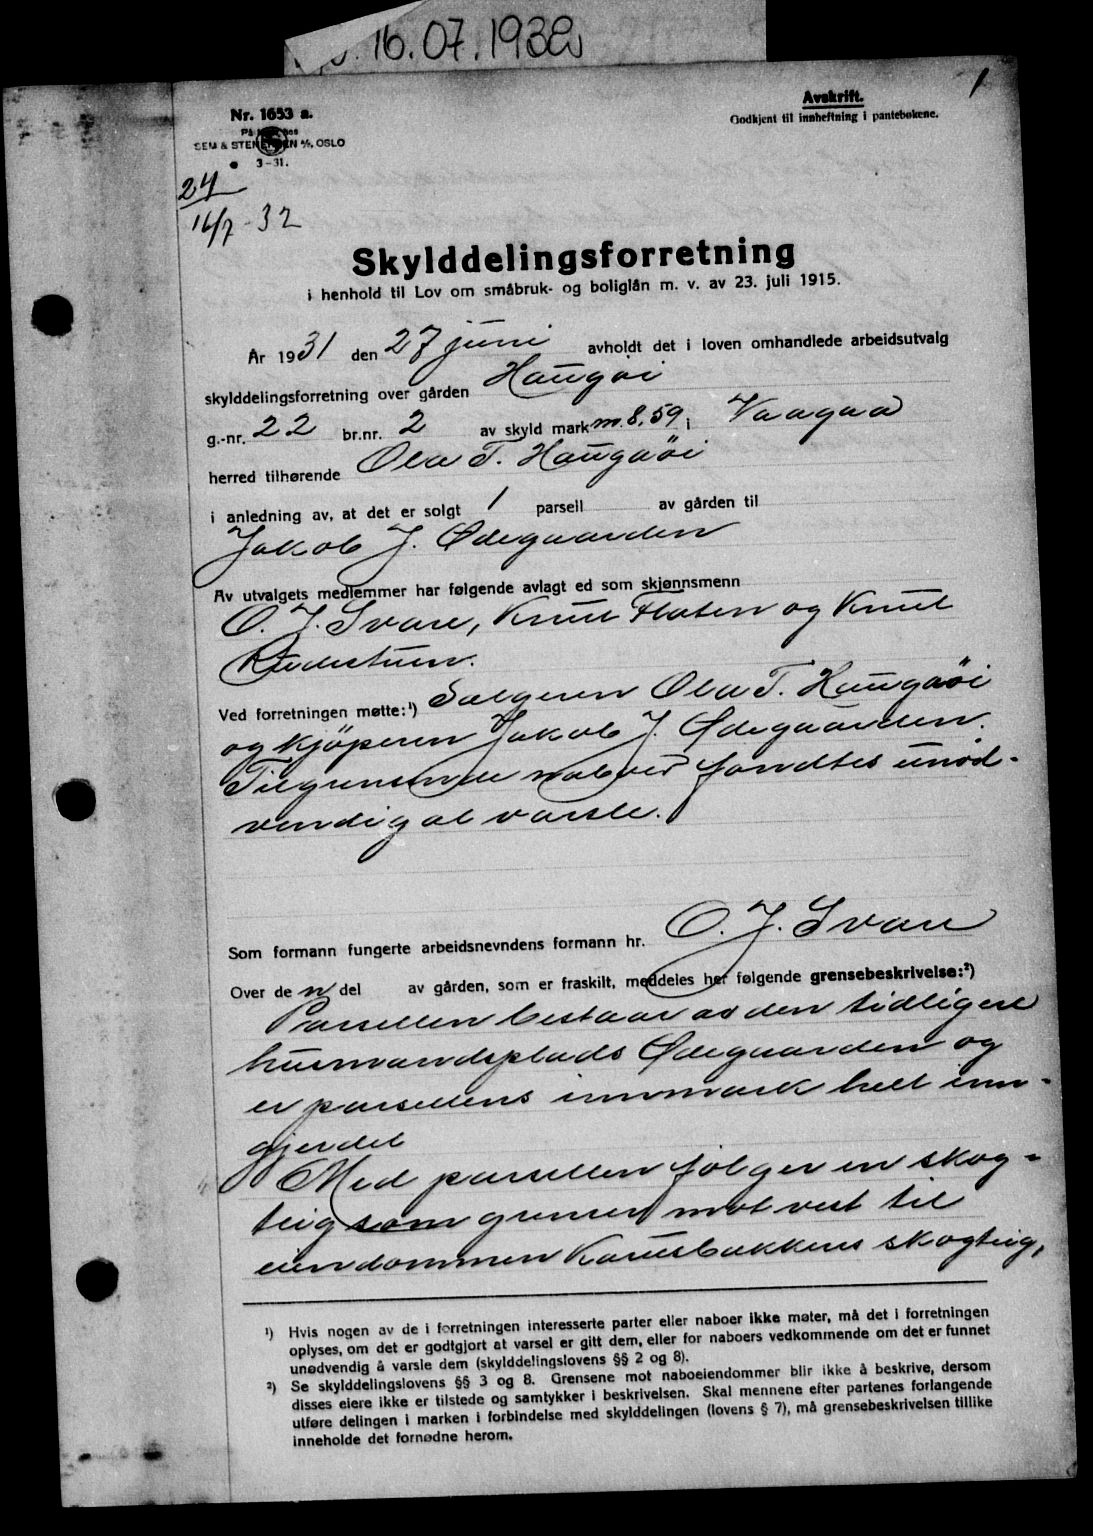 16.07.1932
1
Nr. 1653 a.
SEM & STENERSEN A/S, OSLO
3-31.
Avskrift.
Godkjent til innheftning i pantebøkene.
24
16/7-32
Skylddelingsforretning
i henhold til Lov om småbruk- og boliglån m. v. av 23. juli 1915.
År 1931 den 27 juni avholdt det i loven omhandlede arbeidsutvalg
skylddelingsforretning over gården Haugøi
g.-nr. 22 br.nr. 2 av skyld mark m. 8,59 i Vaagaa
herred tilhørende Ola T. Haugøi
i anledning av, at det er solgt 1 parsell av gården til
Jakob J. Ødegaarden
Av utvalgets medlemmer har følgende avlagt ed som skjønnsmenn
O. J. Svare, Knut Flaten og Knut
Rudistuen.
Ved forretningen møtte:¹) Sælgeren Ola T. Haugøi
og kjöperen Jakob J. Ødegaarden.
Tilgrensende naboer fandtes unød-
vendig at varsle.
Som formann fungerte arbeidsnevndens formann hr. O. J. Svare
Over den del av gården, som er fraskilt, meddeles her følgende grensebeskrivelse:²)
Parsellen bestaar av den tidligere
husmandsplads Ødegaarden og
er parsellens innmark helt inn-
gjerdet
Med parsellen følger en skog-
teig som grenser mot vest til
eiendommen Karusbakkens skogteig,
¹) Hvis nogen av de i forretningen interesserte parter eller naboer ikke møter, må det i forretningen
oplyses, om det er godtgjort at varsel er gitt dem, eller for naboers vedkommende om det er funnet
unødvendig å varsle dem (skylddelingslovens §§ 2 og 8).
²) Se skylddelingslovens §§ 3 og 8. Grensene mot naboeiendommer blir ikke å beskrive, dersom
disses eiere ikke er tilstede og samtykker i beskrivelsen. Skal mennene efter partenes forlangende
utføre delingen i marken i forbindelse med skylddelingen (lovens § 7), må grensebeskrivelsen tillike
inneholde det fornødne herom.